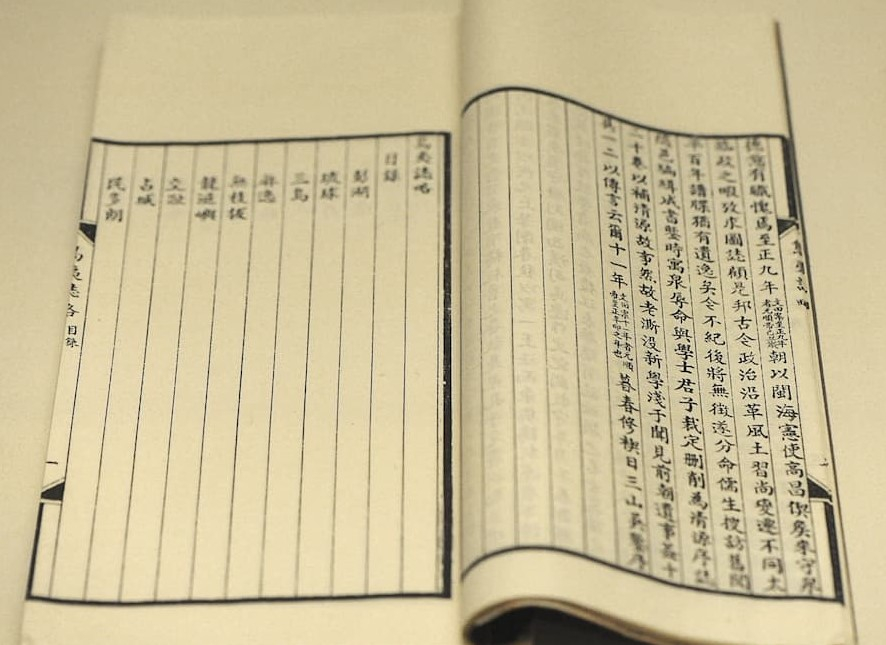 德意有職愧焉至正九年朝以閩海憲使高昌偰矦來守泉
臨政之暇攷求圖誌顧是邦古今政治沿革風土習尚變遷不同太
平百年譜牒猶有遺逸矣今不紀後將無徵遂分命儒生搜訪舊聞
隨邑編緝成書鑒時寓泉辱命與學士君子裁定刪削為清源序誌
二十卷以補清源故事然故老澌沒新學淺于聞見前朝遺事蓋十
一二以傳言云爾十一年暮春修禊日三山吳鑒序
島夷誌略
目錄
彭湖
琉球
三島
麻逸
無枝拔
龍涎嶼
交趾
占城
民多朗
島夷誌略 目錄
一